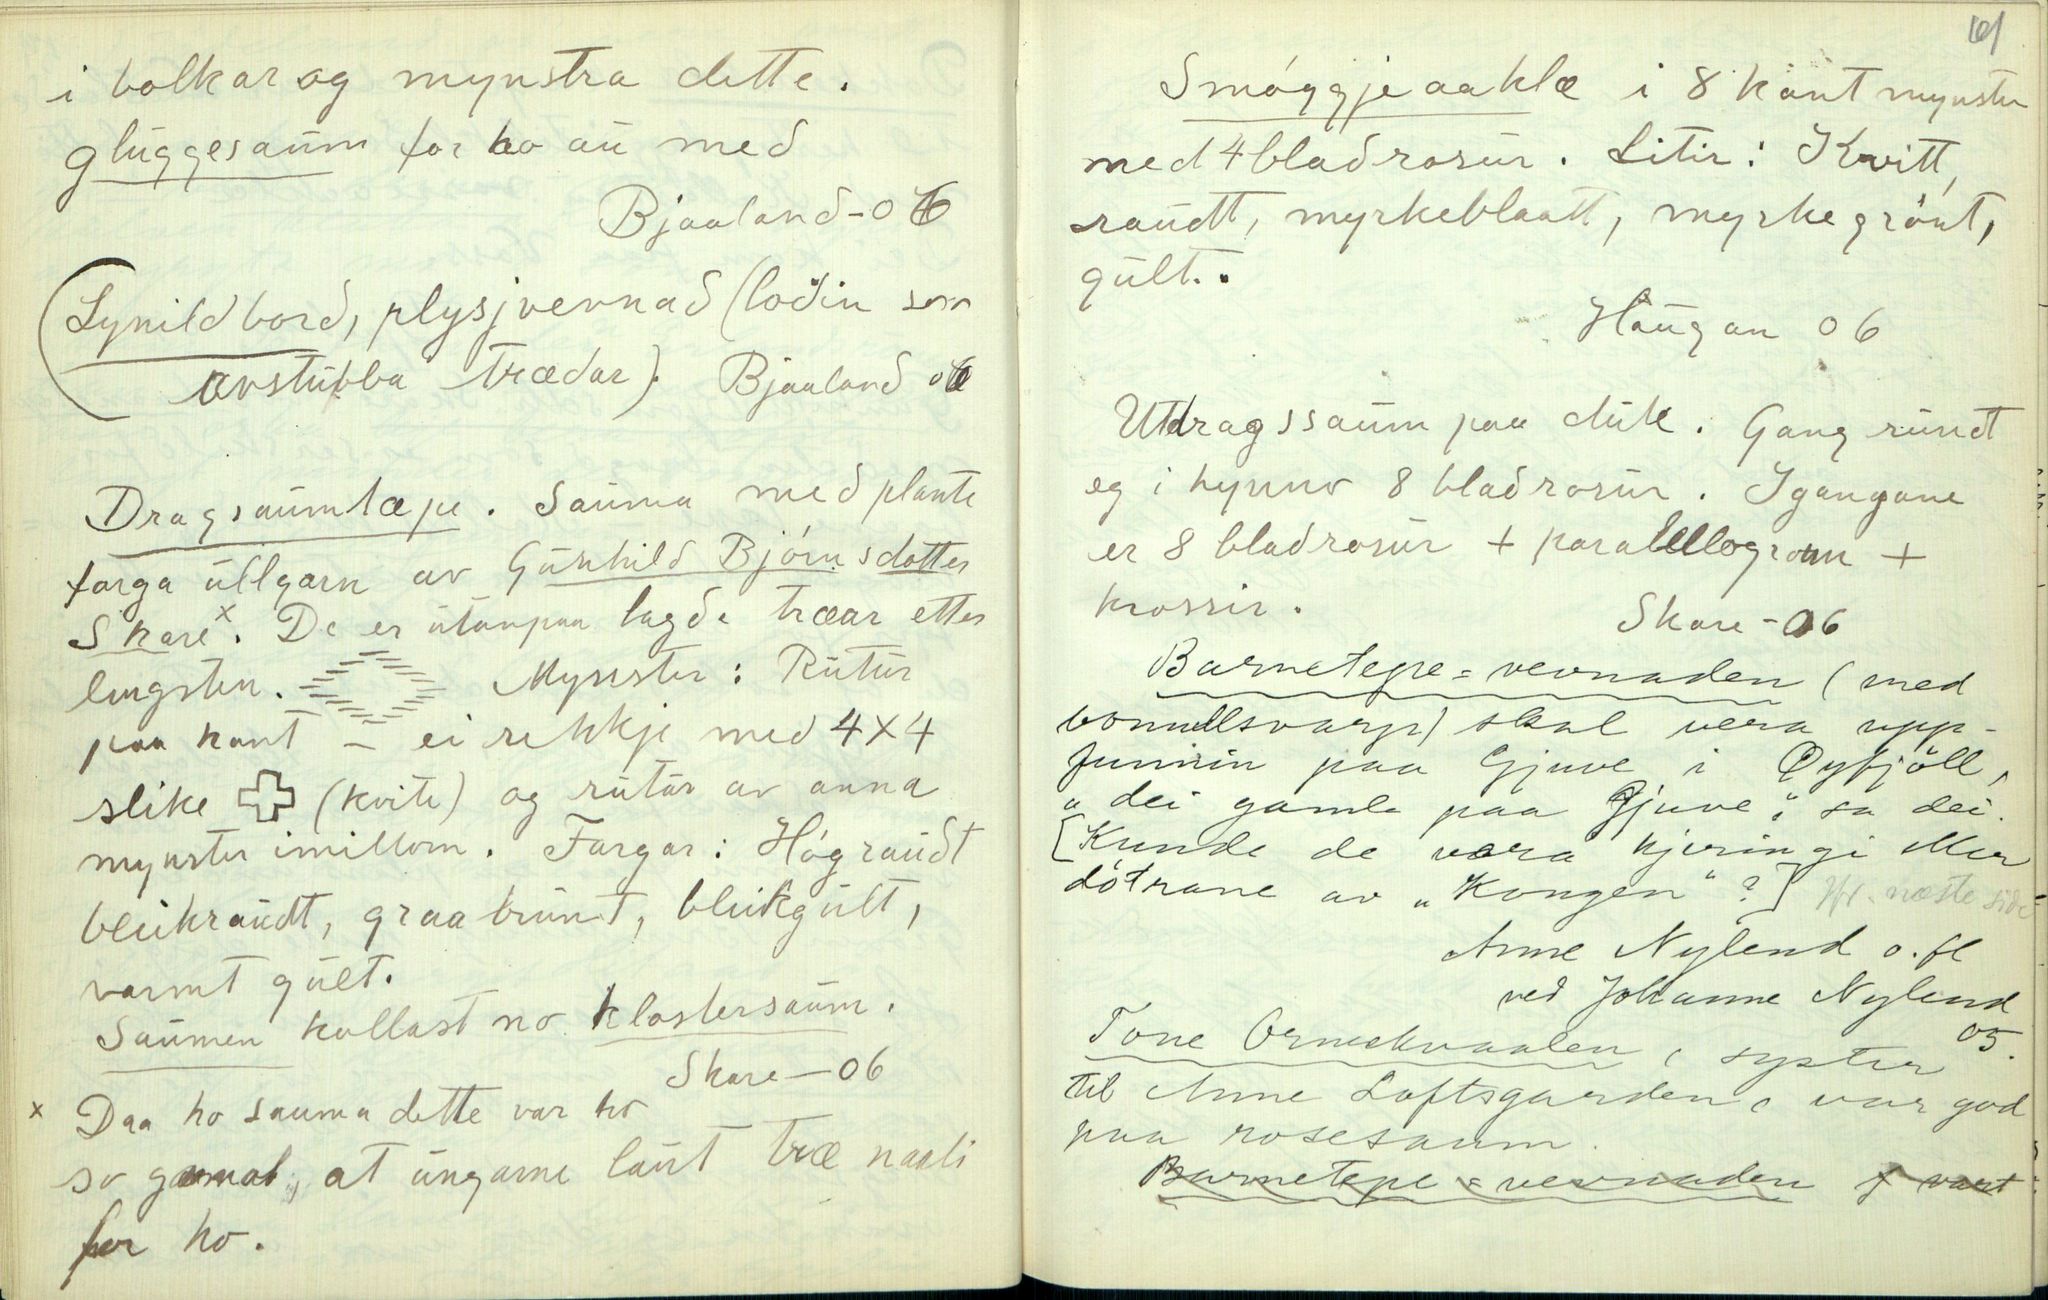 i bolkar og mynstra dette.
gluggesaum for ho au med
Bjaaland - 06
(Lynildbord, plysjvevnad (loðin som
avstubba trædar). Bjaaland 06
Dragsaumtæpe. Sauma med plante
farga ullgarn av Gunhild Bjórnsdotter
Skare x. De er utanpaa lagde træar etter
lengsten. Mynster: Rutur
paa kant – ei rekkje med 4X4
slike (kvite) og rutur av anna
mynster imillom. Fargar: Hógraudt
bleikraudt, graabrunt, bleikgult,
varmt gult.
Saumen kallast no klostersaum.
Skare – 06
x Daa ho sauma dette var ho
so gamal, at ungarne laut træ naali
for ho.
61
Smóggjeaaklæ i 8 kant mynster
med 4 bladrosur. Litir: Kvitt,
raudt, myrkeblaatt, myrkegrönt,
gult.
Haugan 06
Utdragssaum paa duk. Gang rundt
og i hynno 8 bladrosur. I gangane
er 8 bladrosur + paralellogram +
krossir.
Skare - 06
Barnetepe=vevnaden (med
bomullsvarp) skal vera upp-
funnin paa Gjuve i Øyfjöll,
"dei gamle paa Gjuve", sa dei.
[Kunde de vera kjeringi Mer
dótrane av "Kongen"?] næste side
Anne Nylend o. fl
ved Johanne Nylend
05.
Tone Ormekvaalen, syster
til Anne Loftsgarden, var god
paa rosesaum.
Barnetepe=vevnaden vart